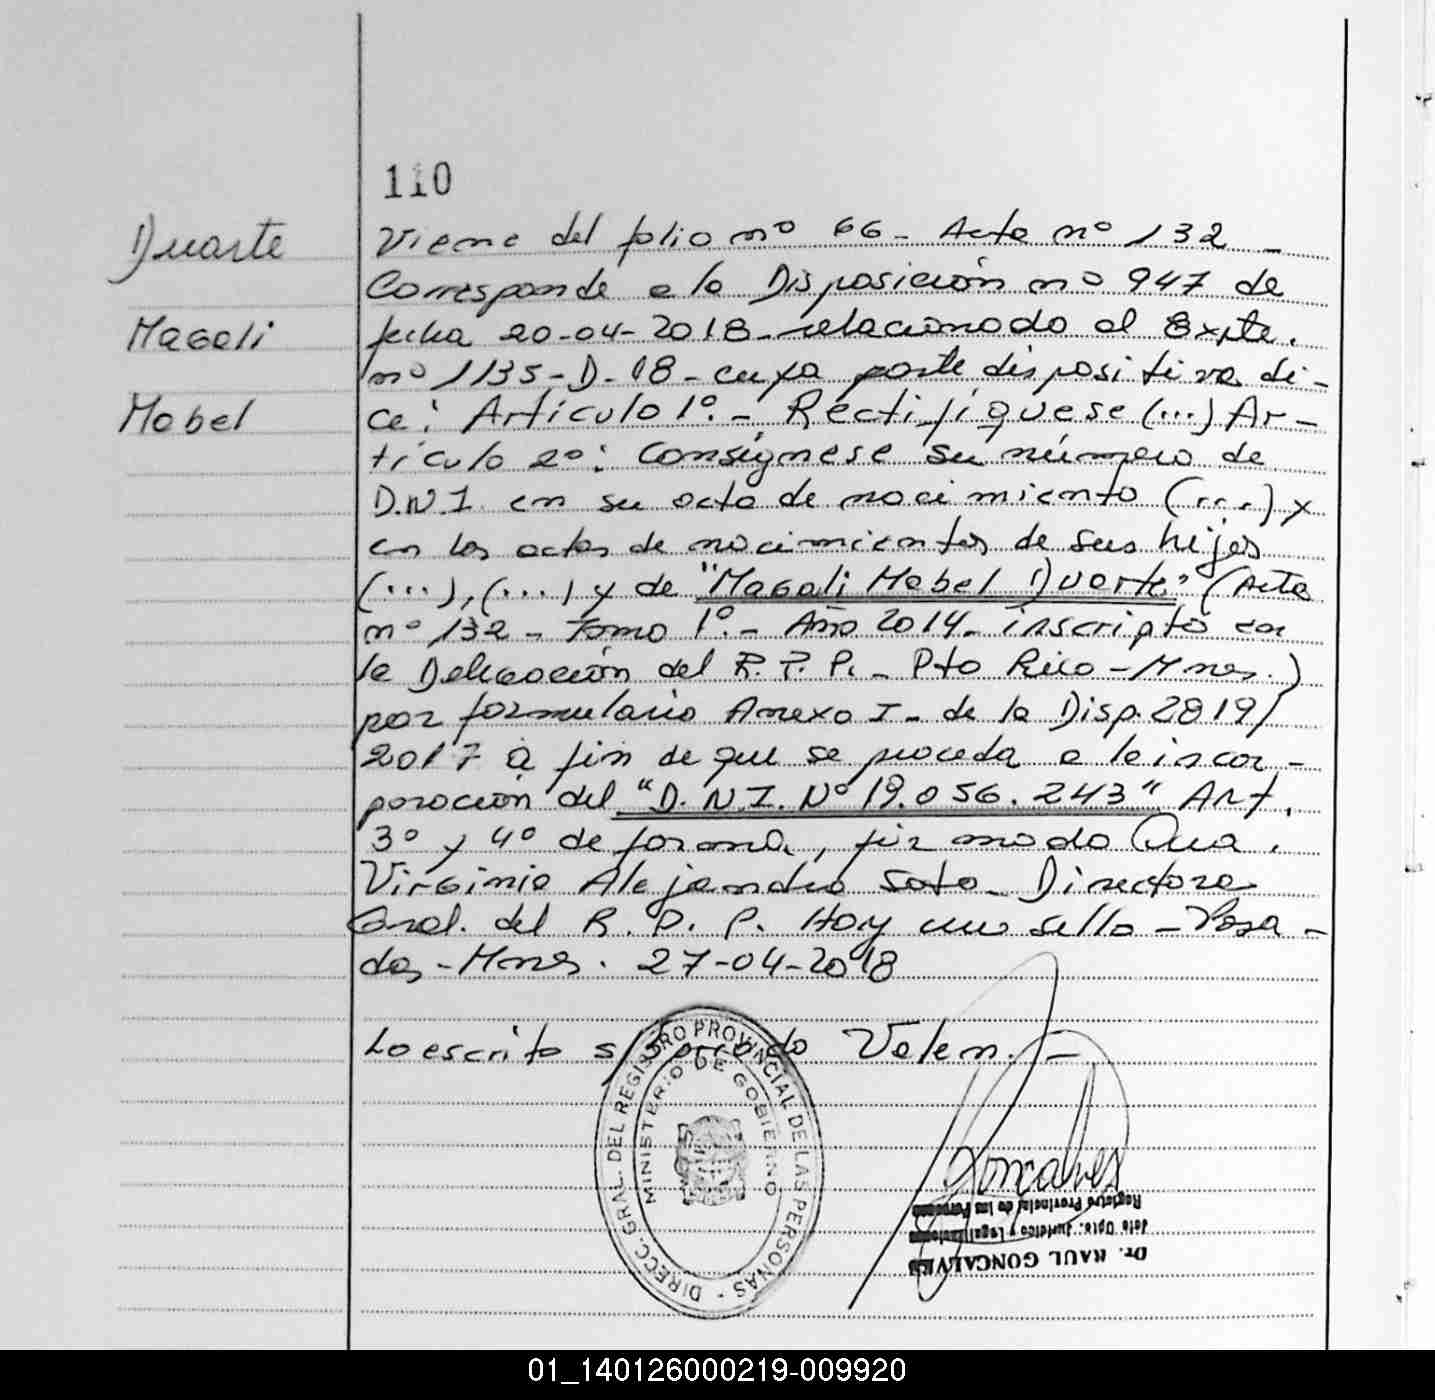 110
Duarte
Magali
Mabel
Viene del folio nº 66 - Acta nº 132 -
Corresponde a la Disposición nº 947 de
fecha 20-04-2018 - relacionado al Expte.
nº 1135-D-18 - cuya parte dispositiva di-
ce: Artículo 1º.- Rectifíquese (...) Ar-
tículo 2º: Consígnese su número de
D.N.I. en su acta de nacimiento (....) y
en las actas de nacimientos de sus hijos
(...), (...) y de "Magali Mabel Duarte" (Acta
nº 132 - Tomo 1º.- Año 2014 - inscripto en
la Delegación del R.P.P. - Pto Rico - Mnes.)
por formulario Anexo I - de la Disp. 2819/
2017 a fin de que se proceda a la incor-
poración del "D.N.I. Nº 19.056.243" Art.
3º y 4º de forma, firmado Dra.
Virginia Alejandra Soto - Directora
Gral. del R.P.P. Hay un sello - Posa-
das - Mnes. 27-04-2018
Lo escrito s/ Valen. -
DIRECC. GRAL. DEL REGISTRO PROVINCIAL DE LAS PERSONAS -
MINISTERIO DE GOBIERNO
Goncalves
Dr. RAUL GONCALVES
Jefe Dpto. Jurídico y Legal
Registro Provincial de las Personas
01_140126000219-009920